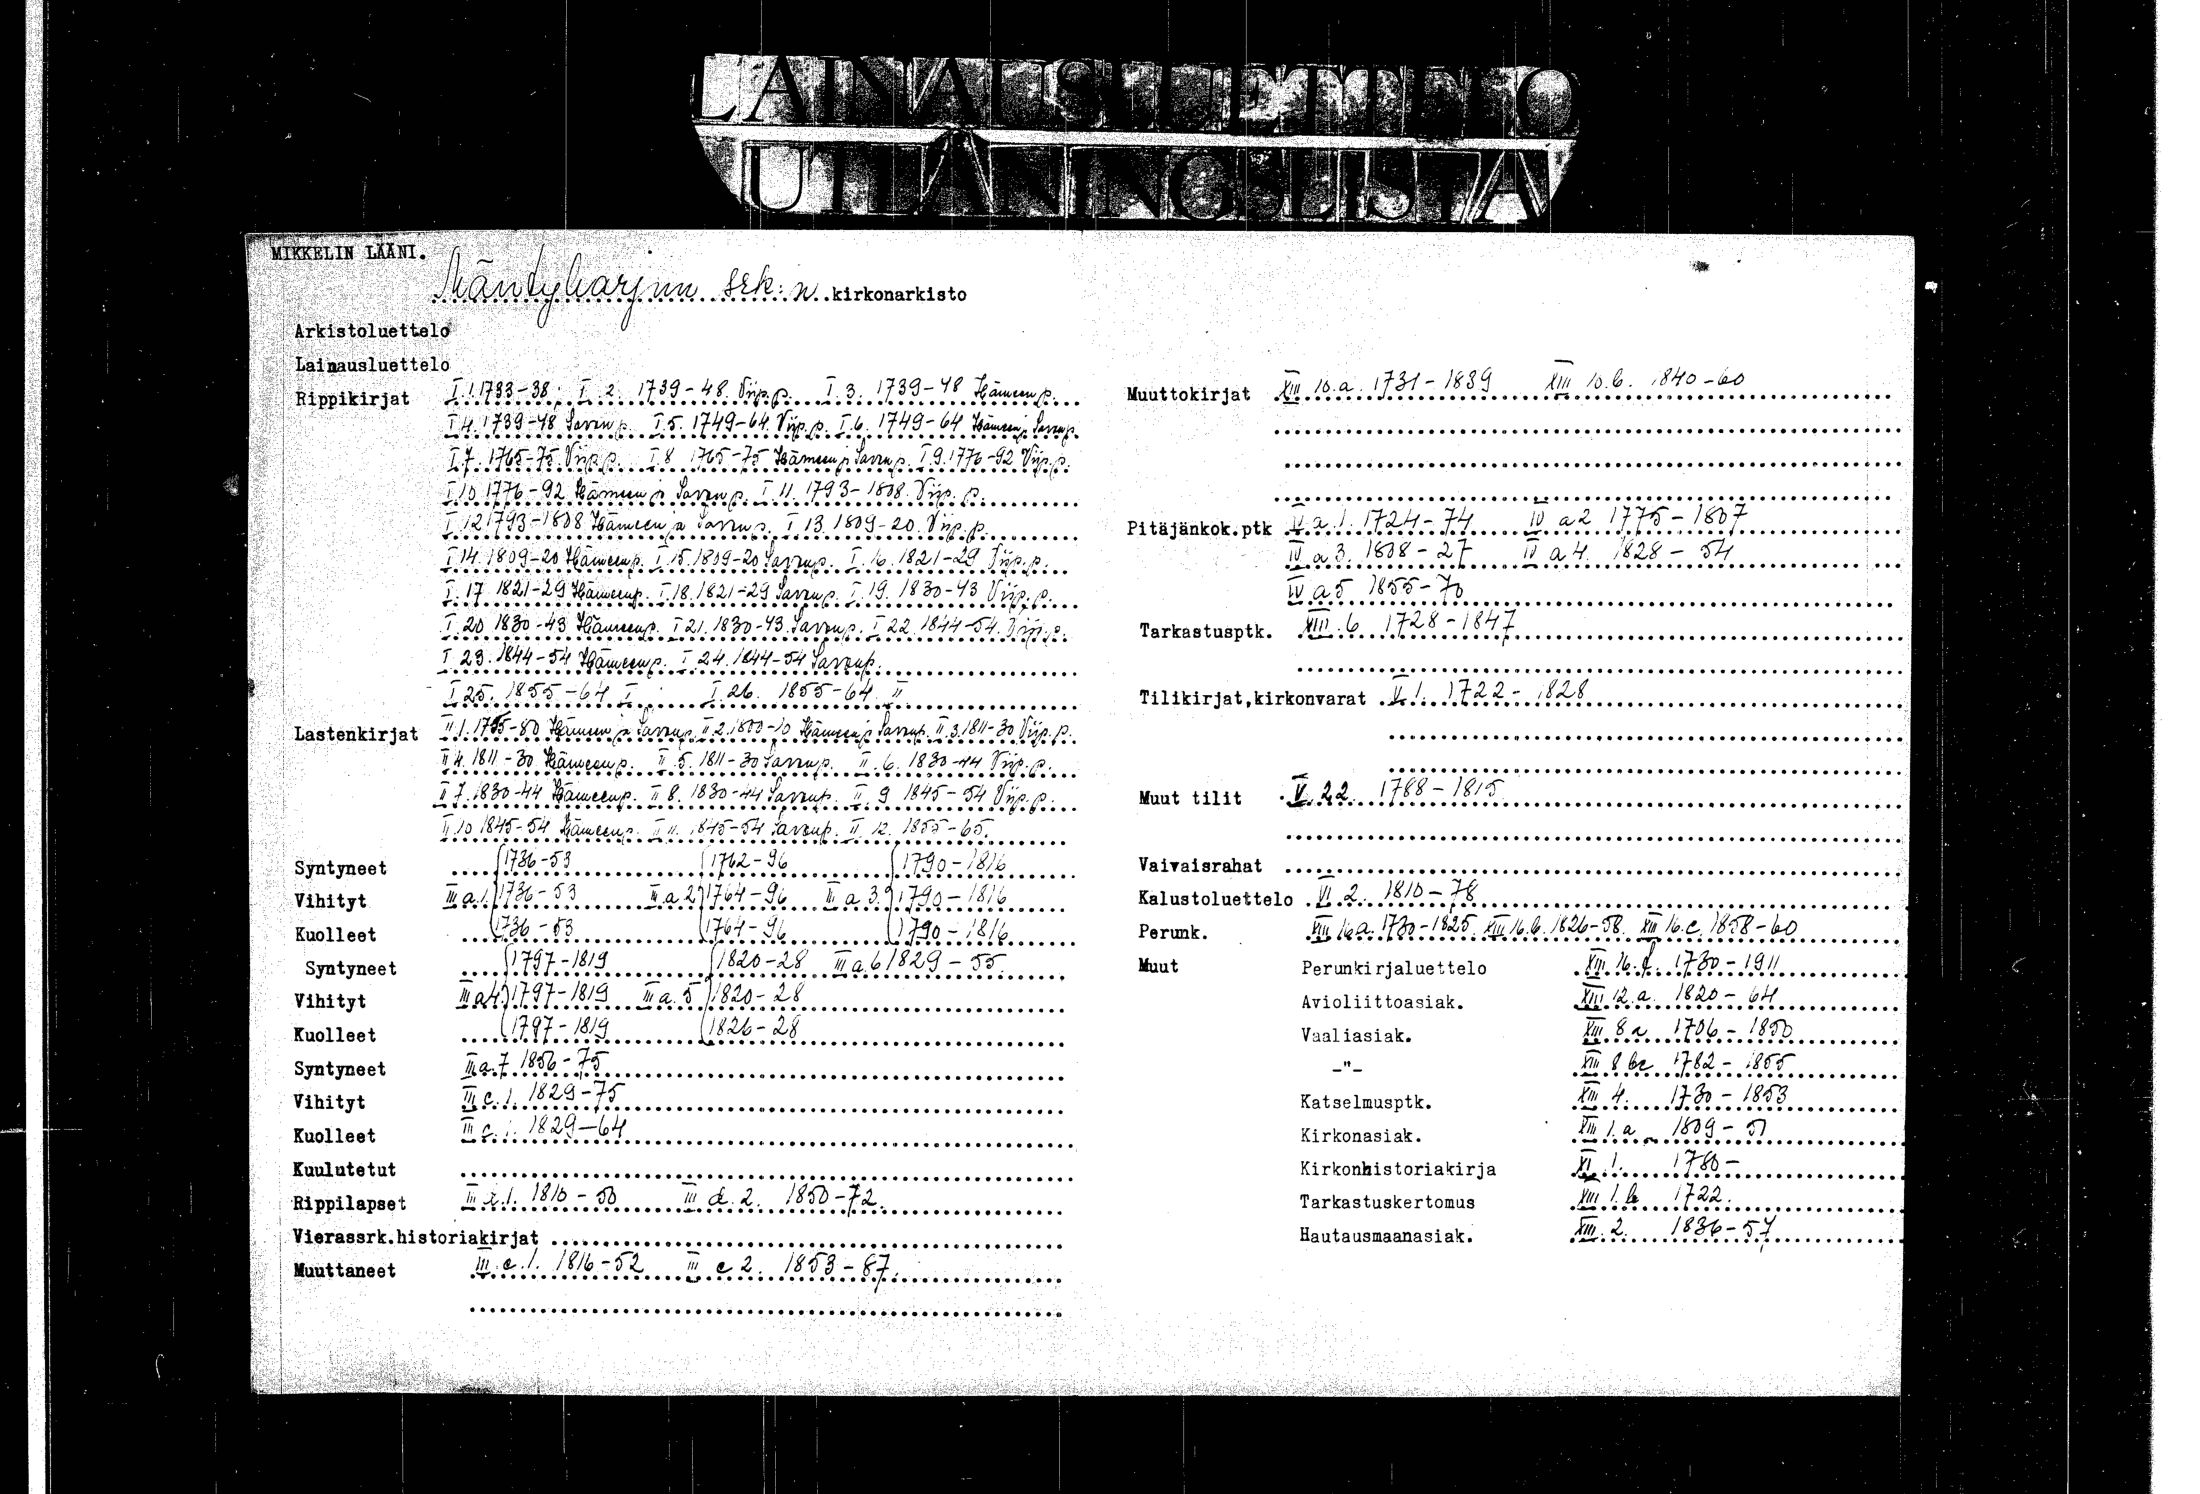 LAINAUSLUETTELO
UTLÅNINGSLISTA
MIKKELIN LÄÄNI.
Mäntyharjun srk:n kirkonarkisto
Arkistoluettelo
Lainausluettelo
Rippikirjat I.1.1733-38; I.2. 1739-48. Viip.p. I.3. 1739-48 Hämeen p.
I 4. 1739-48 Savon p. I.5. 1749-64. Viip.p. I.6. 1749-64 Hämeen ja Savon p.
I.7. 1765-75 Viip.p. I.8 1765-75 Hämeen ja Savon p. I.9. 1776-92 Viip.p.
I.10 1776-92 Hämeen ja Savon p. I.11. 1793-1808. Viip.p.
I.12 1793-1808 Hämeen ja Savon p. I 13. 1809-20. Viip.p.
I 14. 1809-20 Hämeen p. I.15. 1809-20 Savon p. I.16. 1821-29 Viip.p.
I.17 1821-29 Hämeen p. I.18. 1821-29 Savon p. I.19. 1830-43 Viip.p.
I 20 1830-43 Hämeen p. I 21. 1830-43. Savon p. I 22. 1844-54. Viip.p.
I 23. 1844-54 Hämeen p. I 24. 1844-54 Savon p.
I 25. 1855-64 I I.26. 1855-64. II
Lastenkirjat II 1. 1755-80 Hämeen ja Savon p. II 2. 1800-10 Hämeen ja Savon p. II 3. 1811-30 Viip.p.
II 4. 1811-30 Hämeen p. II.5. 1811-30 Savon p. II.6. 1830-44 Viip.p.
II 7. 1830-44 Hämeen p. II 8. 1830-44 Savon p. II 9 1845-54 Viip.p.
II.10 1845-54 Hämeen p. II 11. 1845-54 Savon p. II 12. 1855-65.
Syntyneet 1736-53 1762-96 1790-1816
Vihityt III a.1. 1736-53 III a.2 1764-96 III a 3. 1790-1816
Kuolleet 1736-53 1764-96 1790-1816
Syntyneet 1797-1819 1820-28 III a.6 1829-55.
Vihityt III a 4. 1797-1819 III a.5 1820-28
Kuolleet 1797-1819 1826-28
Syntyneet III a.7 1856-75
Vihityt III c.1. 1829-75
Kuolleet III c.1. 1829-64
Kuulutetut
Rippilapset III d.1. 1810-50 III d.2. 1850-72.
Vierassrk.historiakirjat
Muuttaneet III.e.1. 1816-52 III e 2. 1853-87.
Muuttokirjat XIII 10.a. 1731-1839 XIII 10.b. 1840-60
Pitäjänkok.ptk IV a.1. 1724-74 IV a 2 1775-1807
IV a 3. 1808-27 IV a 4. 1828-54
IV a 5 1855-70
Tarkastusptk. XIII.6 1728-1847
Tilikirjat,kirkonvarat V.1. 1722-1828
Muut tilit V.22. 1788-1815
Vaivaisrahat
Kalustoluettelo VI.2. 1810-78
Perunk. XIII 16a. 1730-1825. XIII 16.b. 1826-58. XIII 16.c. 1858-60
Muut Perunkirjaluettelo XIII 16.f. 1730-1911
Avioliittoasiak. XIII 12.a. 1820-64
Vaaliasiak. XIII 8 a 1706-1850
-"- XIII 8 bc 1782-1855
Katselmusptk. XIII 4. 1730-1853
Kirkonasiak. XIII 1.a 1809-51
Kirkonhistoriakirja XI.1. 1780-
Tarkastuskertomus XIII 1.b 1722.
Hautausmaanasiak. XIII.2. 1836-57